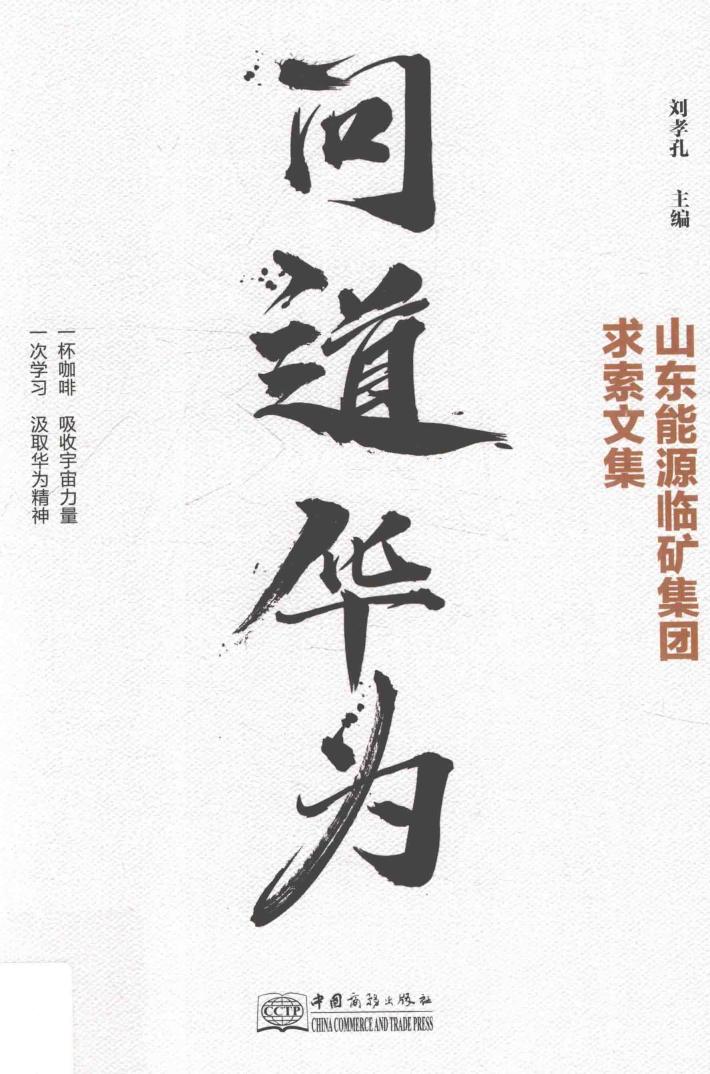 刘孝孔 主编
山东能源临矿集团
求索文集
问道华为
一杯咖啡 吸收宇宙力量
一次学习 汲取华为精神
CCTP
中国商务出版社
CHINA COMMERCE AND TRADE PRESS